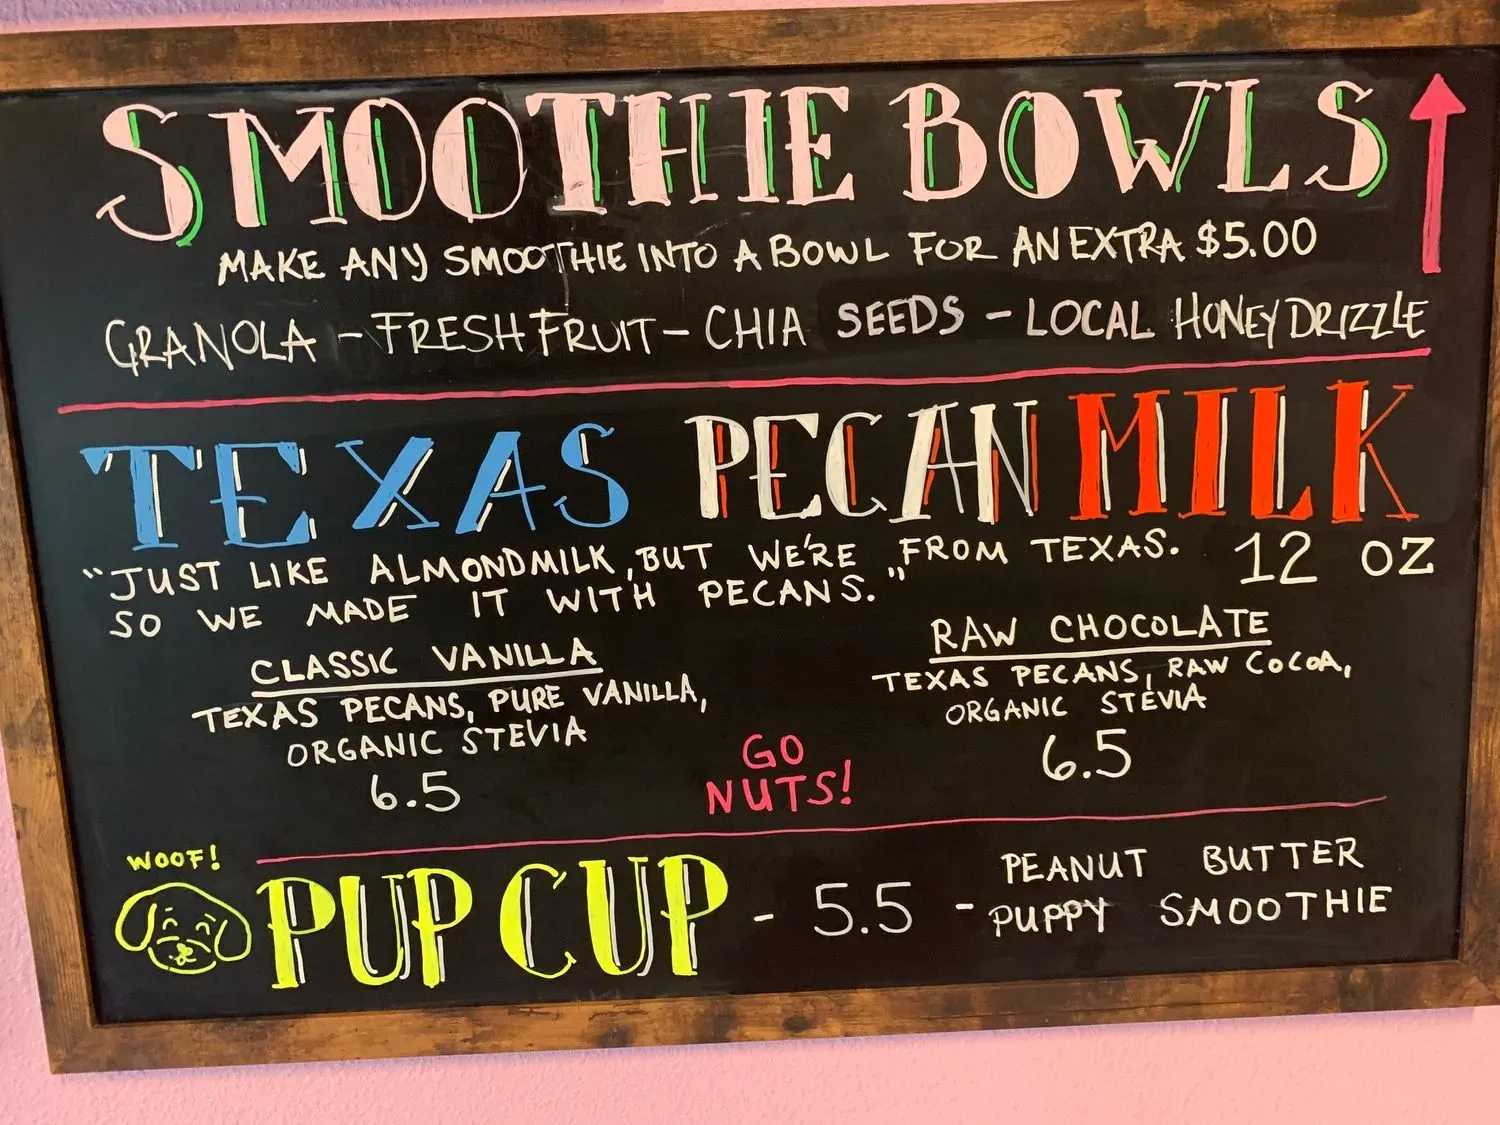 SMOOTHIE BOWLS
MAKE ANY SMOOTHIE INTO A BOWL FOR AN EXTRA $5.00
GRANOLA - FRESH FRUIT - CHIA SEEDS - LOCAL HONEY DRIZZLE
TEXAS PECAN MILK
"JUST LIKE ALMONDMILK, BUT WE'RE FROM TEXAS.
SO WE MADE IT WITH PECANS."
12 OZ
CLASSIC VANILLA
TEXAS PECANS, PURE VANILLA,
ORGANIC STEVIA
6.5
RAW CHOCOLATE
TEXAS PECANS, RAW COCOA,
ORGANIC STEVIA
6.5
GO
NUTS!
WOOF!
PUP CUP - 5.5 - PEANUT BUTTER
PUPPY SMOOTHIE